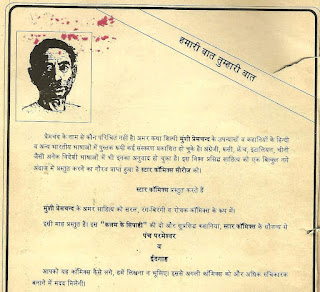 हमारी बात तुम्हारी बात
प्रेमचंद के नाम से कौन परिचित नहीं है। अमर कथा शिल्पी मुंशी प्रेमचन्द के उपन्यासों व कहानियों के हिन्दी
व अन्य भारतीय भाषाओं में पुस्तक रूपी कई संस्करण प्रकाशित हो चुके हैं। अंग्रेजी, रूसी, फ्रेंच, इटालियन, चीनी
जैसी अनेक विदेशी भाषाओं में भी इनका अनुवाद हो चुका है। इस विश्व प्रसिद्ध साहित्य को एक बिल्कुल नये
अंदाज़ में प्रस्तुत करने का गौरव प्राप्त हुआ है स्टार कॉमिक्स सीरीज को।
स्टार कॉमिक्स प्रस्तुत करते हैं
मुंशी प्रेमचन्द के अमर साहित्य को सरल, रंग-बिरंगी व रोचक कॉमिक्स के रूप में।
इसी माह प्रस्तुत हैं। इस "कलम के सिपाही" की दो और सुप्रसिद्ध कहानियां, स्टार कॉमिक्स के सौजन्य से
पंच परमेश्वर
व
ईदगाह
आपको यह कॉमिक्स कैसे लगे, हमें लिखना न भूलिए। इससे अगली कॉमिक्स को और अधिक रुचिकारक
बनाने में मदद मिलेगी।